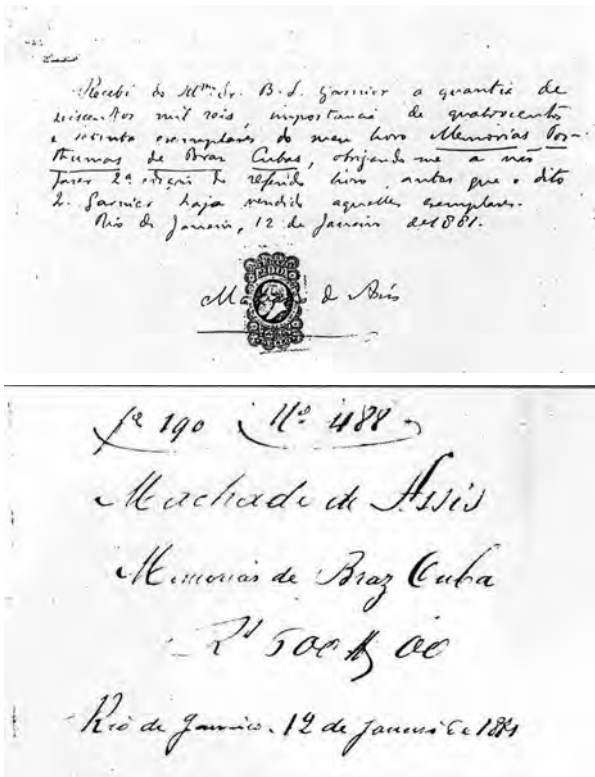 Recebi do Illmo. Sr. B. L. Garnier a quantia de
seiscentos mil reis, importancia de quatrocentos
e setenta exemplares do meu livro Memorias Pos-
thumas de Braz Cubas, obrigando me a não
fazer 2ª edição do referido livro, antes que o dito
Sr. Garnier haja vendido aquelles exemplares.
Rio de Janeiro, 12 de Janeiro de 1881.
200
Machado de Assis
190 Nº 488
Machado de Assis
Memorias de Braz Cuba
Rio de Janeiro. 12 de Janeiro de 1881